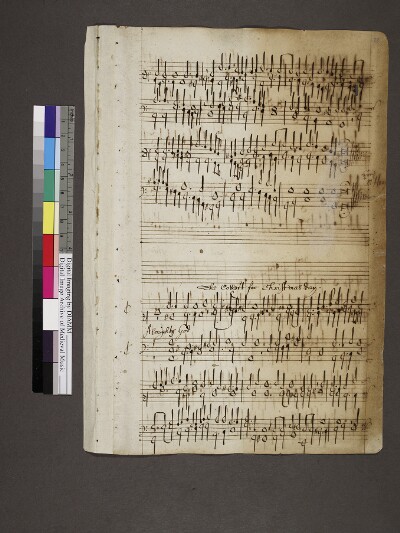 The Collect for Christmas day
Almighty God
Digital Imaging by DIAMM
Digital Image Archive of Medieval Music